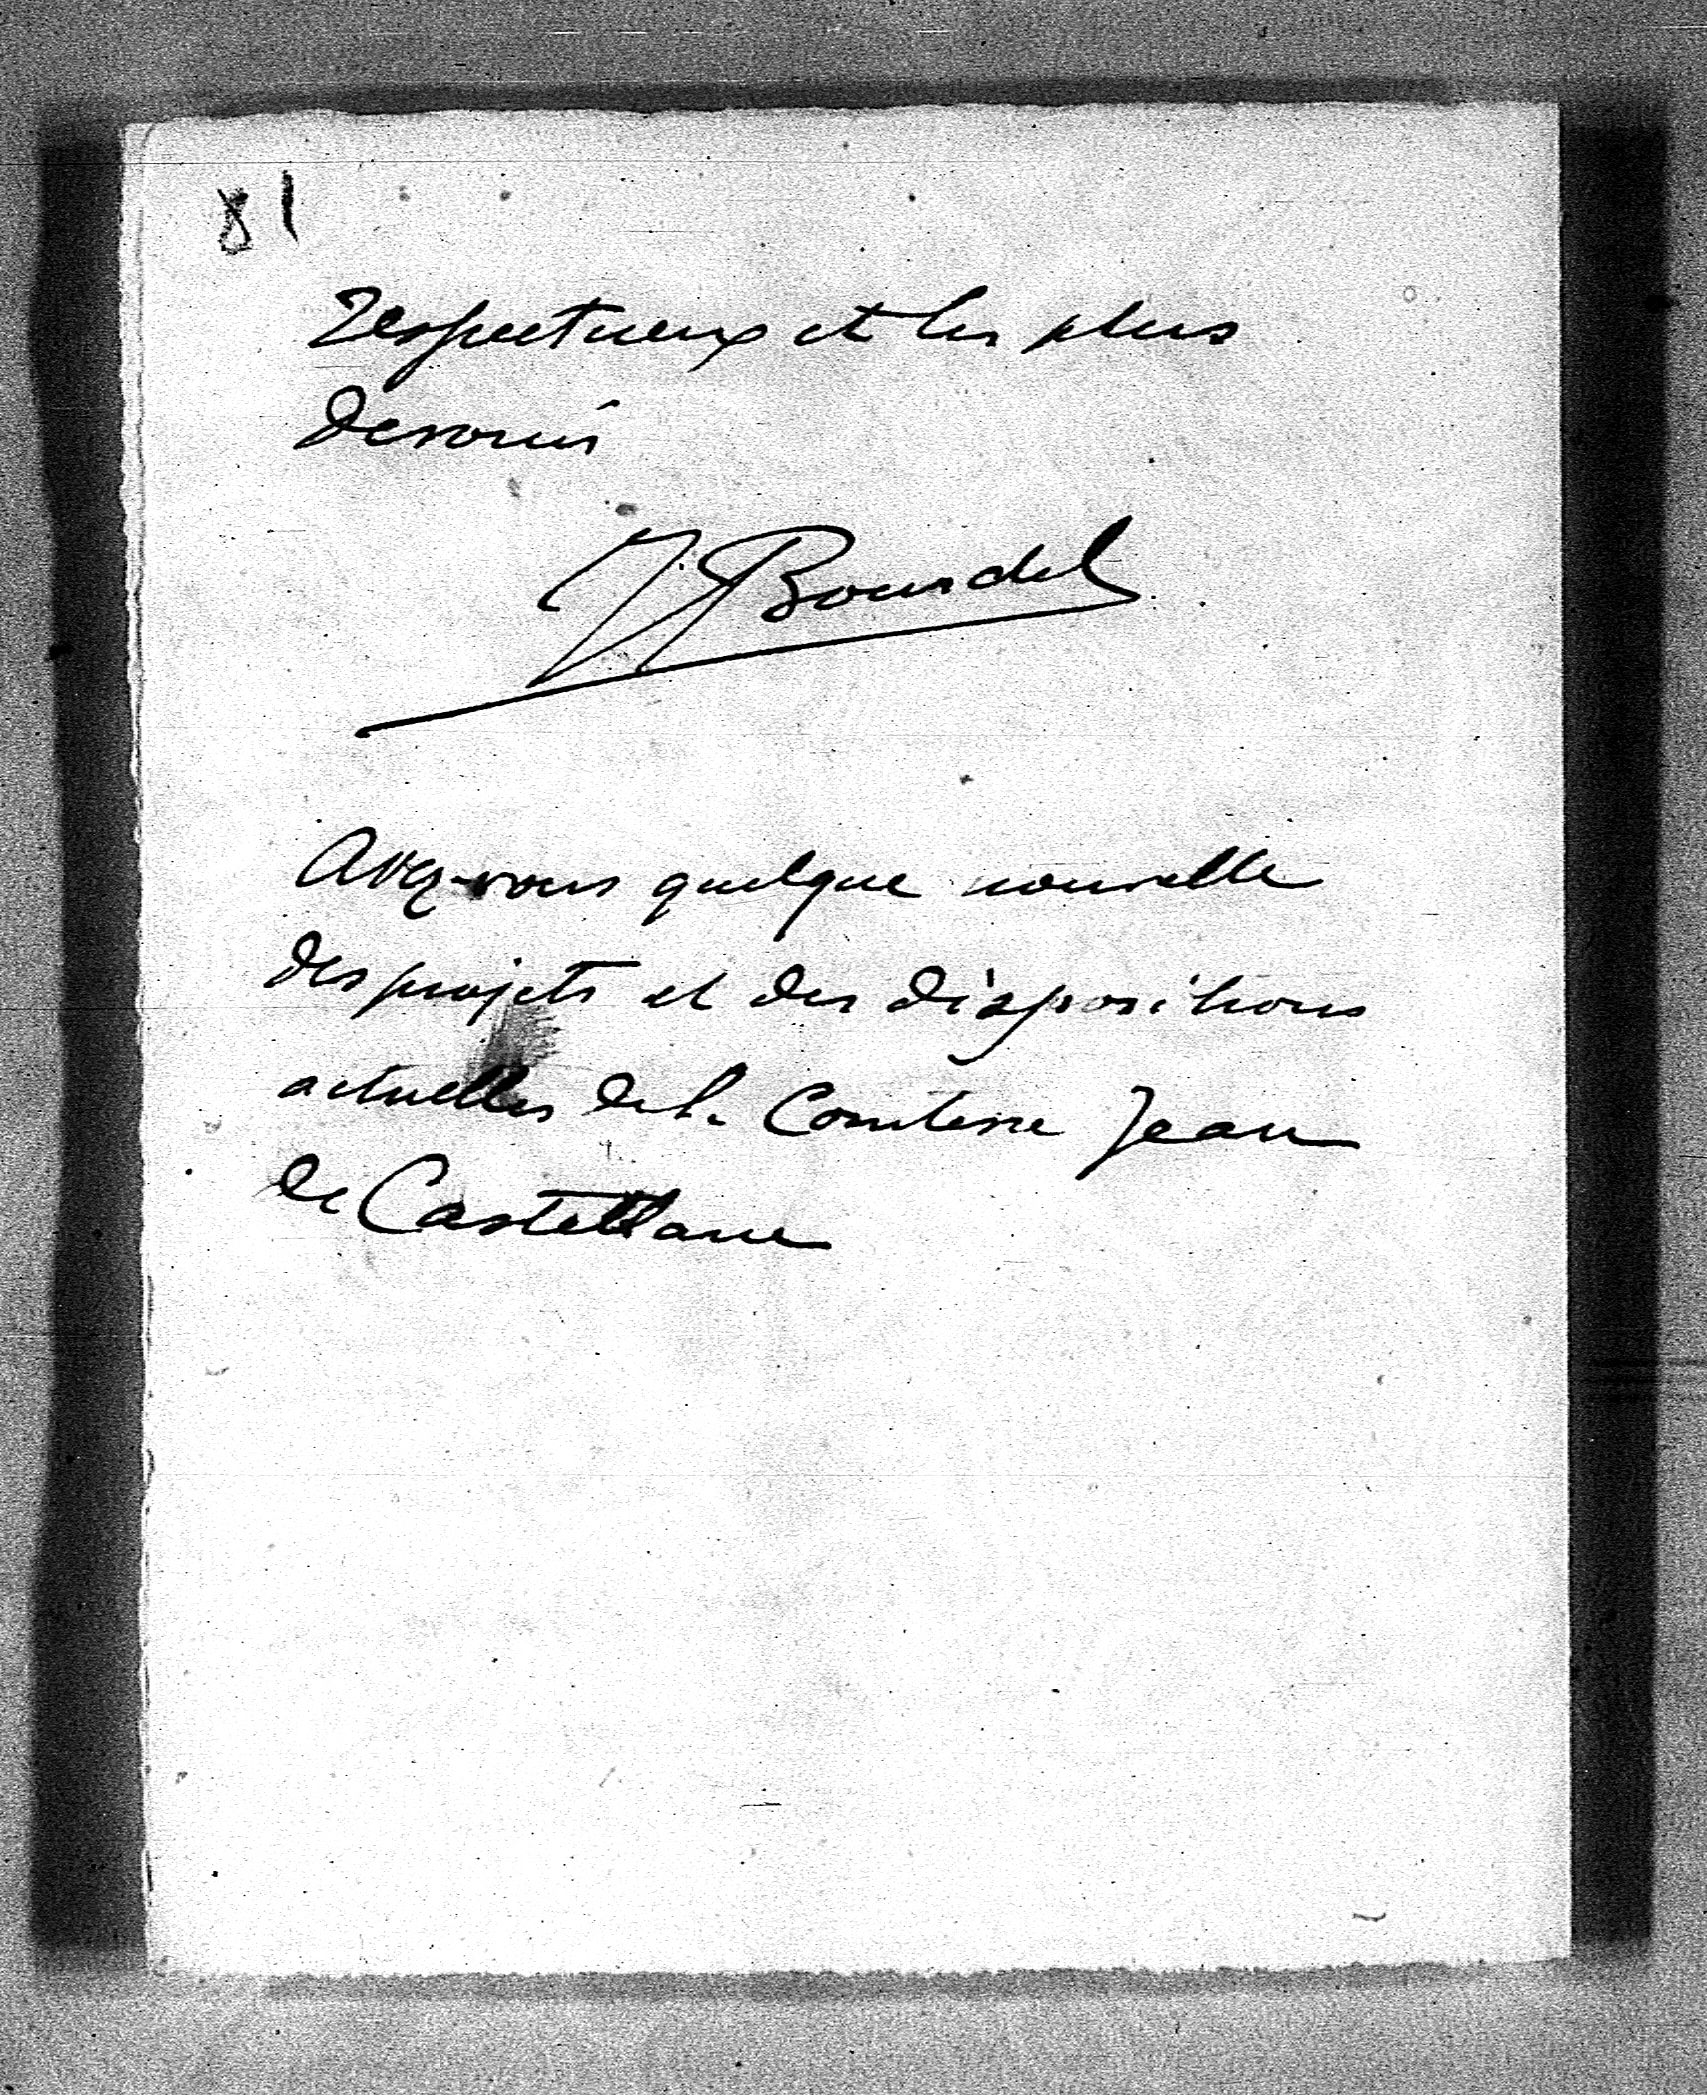 81
respectueux et les plus
devoués
J. Bourdel
Avez-vous quelque nouvelle
des projets et des dispositions
actuelles de la Comtesse Jean
de Castellane